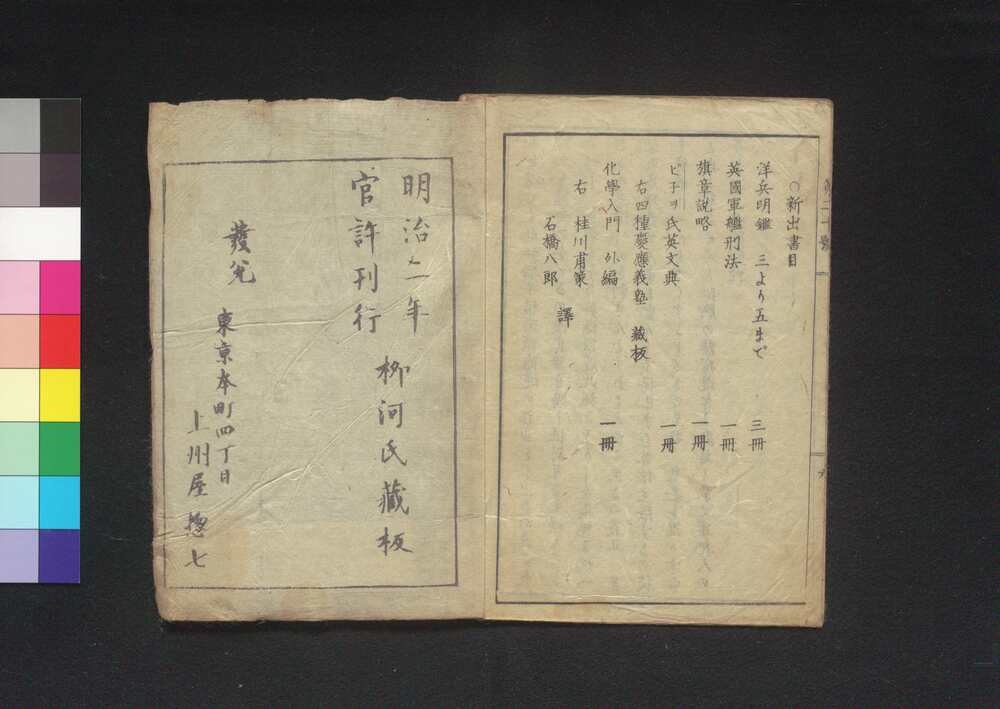 ○新出書目
洋兵明鑑 三より五まで 三冊
英國軍艦刑法 一冊
旗章説略 一冊
ピ子ヲ氏英文典 一冊
右四種慶應義塾 藏板
化學入門 外編 一冊
右 桂川甫策
石橋八郎
譯
明治二年
官許刊行
柳河氏藏板
發兌
東京本町四丁目
上州屋惣七